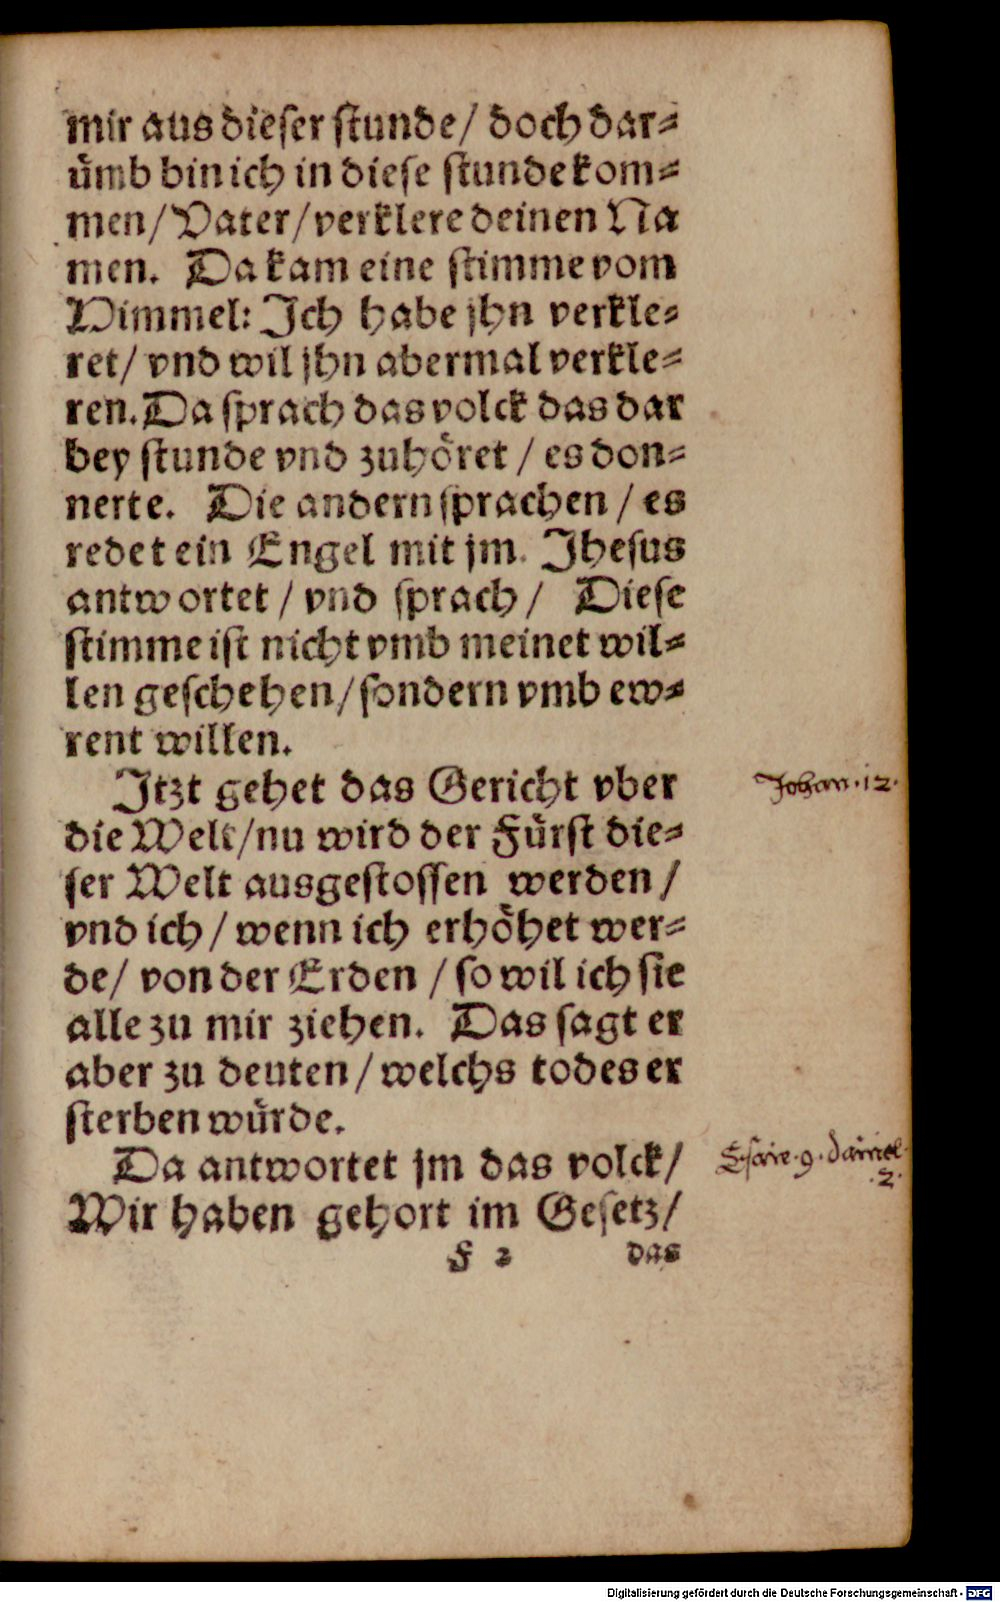 mir aus dieser stunde/ doch dar⸗
uͤmb bin ich in diese stunde kom⸗
men/ Vater/ verklere deinen Na
men. Da kam eine stimme vom
Himmel: Jch habe jhn verkle⸗
ret/ vnd wil jhn abermal verkle⸗
ren. Da sprach das volck das dar
bey stunde vnd zuhoͤret / es don⸗
nerte. Die andern sprachen / es
redet ein Engel mit jm. Jhesus
antwortet / vnd sprach / Diese
stimme ist nicht vmb meinet wil⸗
len geschehen / sondern vmb ew⸗
rent willen.
Jtzt gehet das Gericht vber
Johan. 12.
die Welt/ nu wird der Fuͤrst die⸗
ser Welt ausgestossen werden /
vnd ich / wenn ich erhoͤhet wer⸗
de/ von der Erden / so wil ich sie
alle zu mir ziehen. Das sagt er
aber zu deuten / welchs todes er
sterben wuͤrde.
Da antwortet jm das volck/
Esaie. 9. Daniel.
2.
Wir haben gehort im Gesetz/
F 2 das
Digitalisierung gefördert durch die Deutsche Forschungsgemeinschaft - DFG